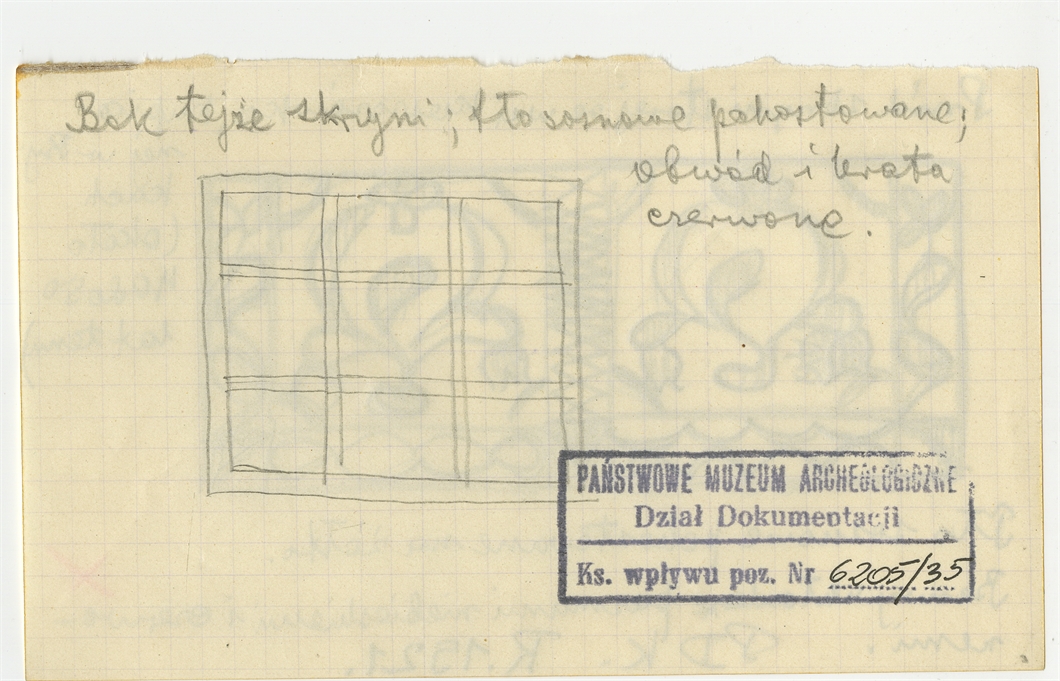 Bok tejże skrzyni; tło sosnowe pokostowane;
obwód i krata
czerwone.
PAŃSTWOWE MUZEUM ARCHEOLOGICZNE
Dział Dokumentacji
Ks. wpływu poz. Nr 6205/35